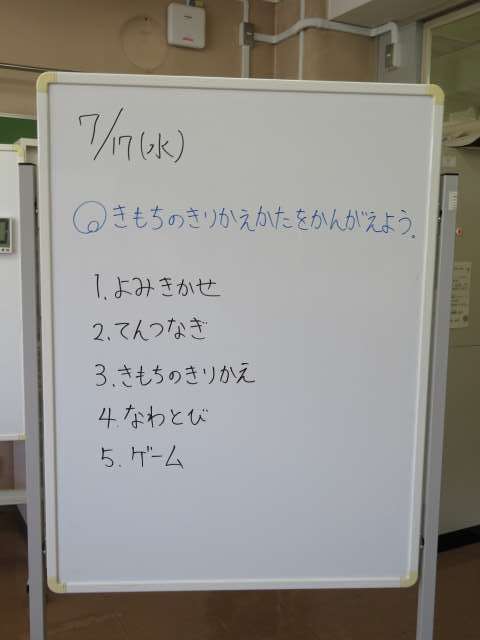 7/17(水)
きもちのきりかえかたをかんがえよう。
1.よみきかせ
2.てんつなぎ
3.きもちのきりかえ
4.なわとび
5.ゲーム